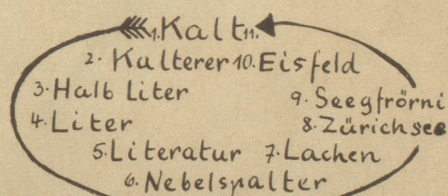 1. Kalt 11.
2. Kalterer 10. Eisfeld
3. Halb Liter
9. Seegfrörni
4. Liter
8. Zürichsee
5. Literatur 7. Lachen
6. Nebelspalter